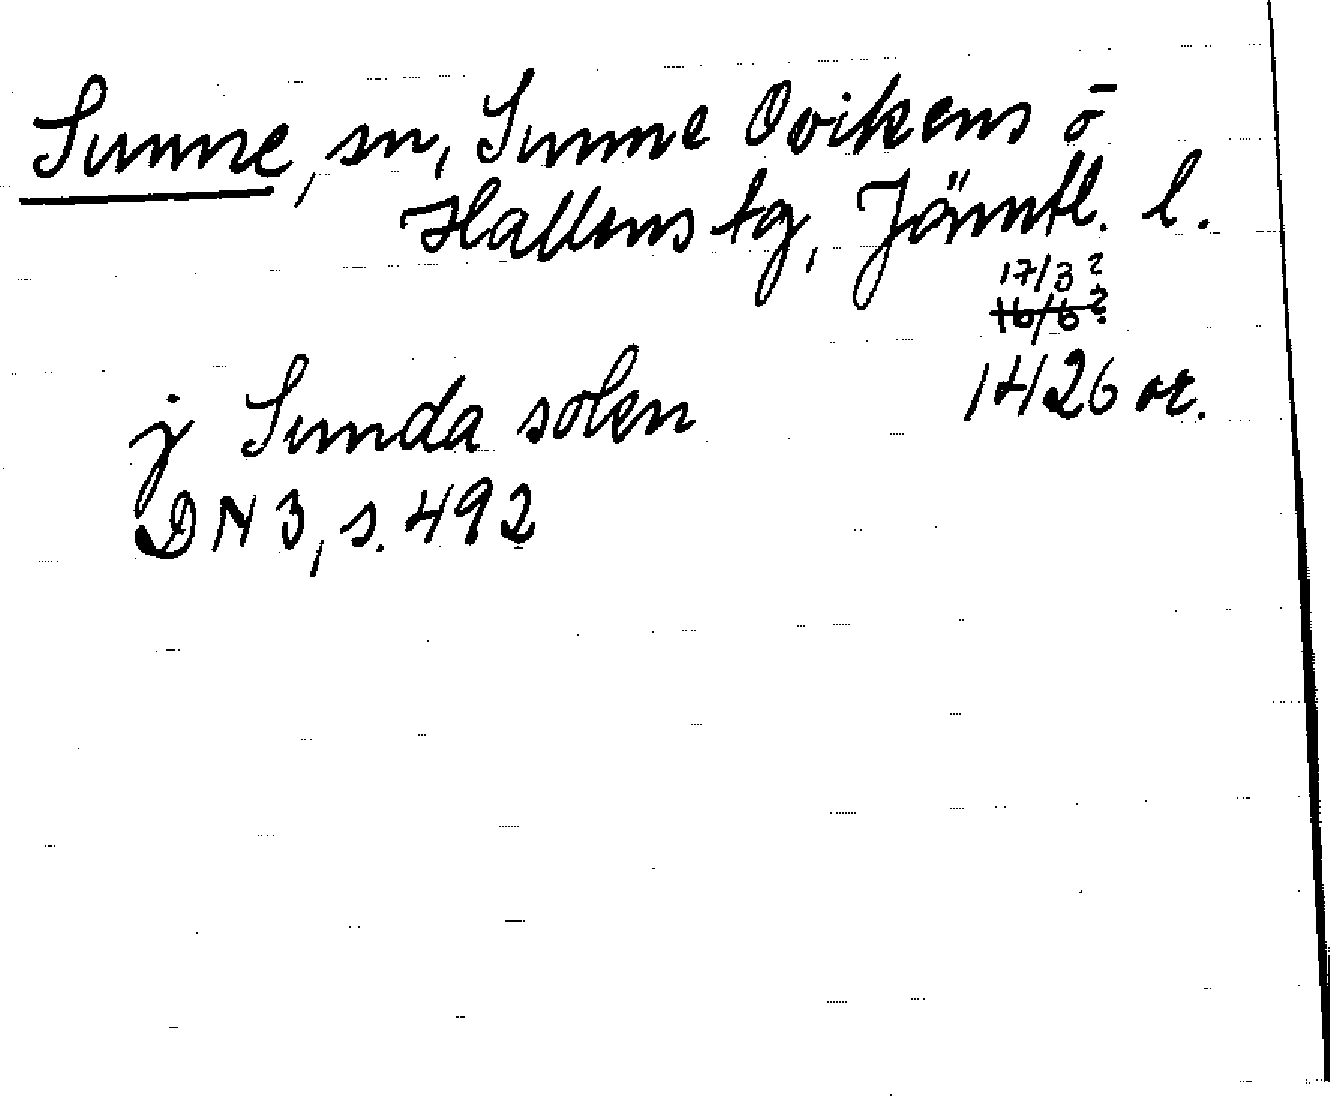 Sunne, sn, Sunne Ovikens o
Hallens tg, Jämtl. l.
17/3?
16/6?
1426 or.
j Sunda solen
DN 3, s. 492